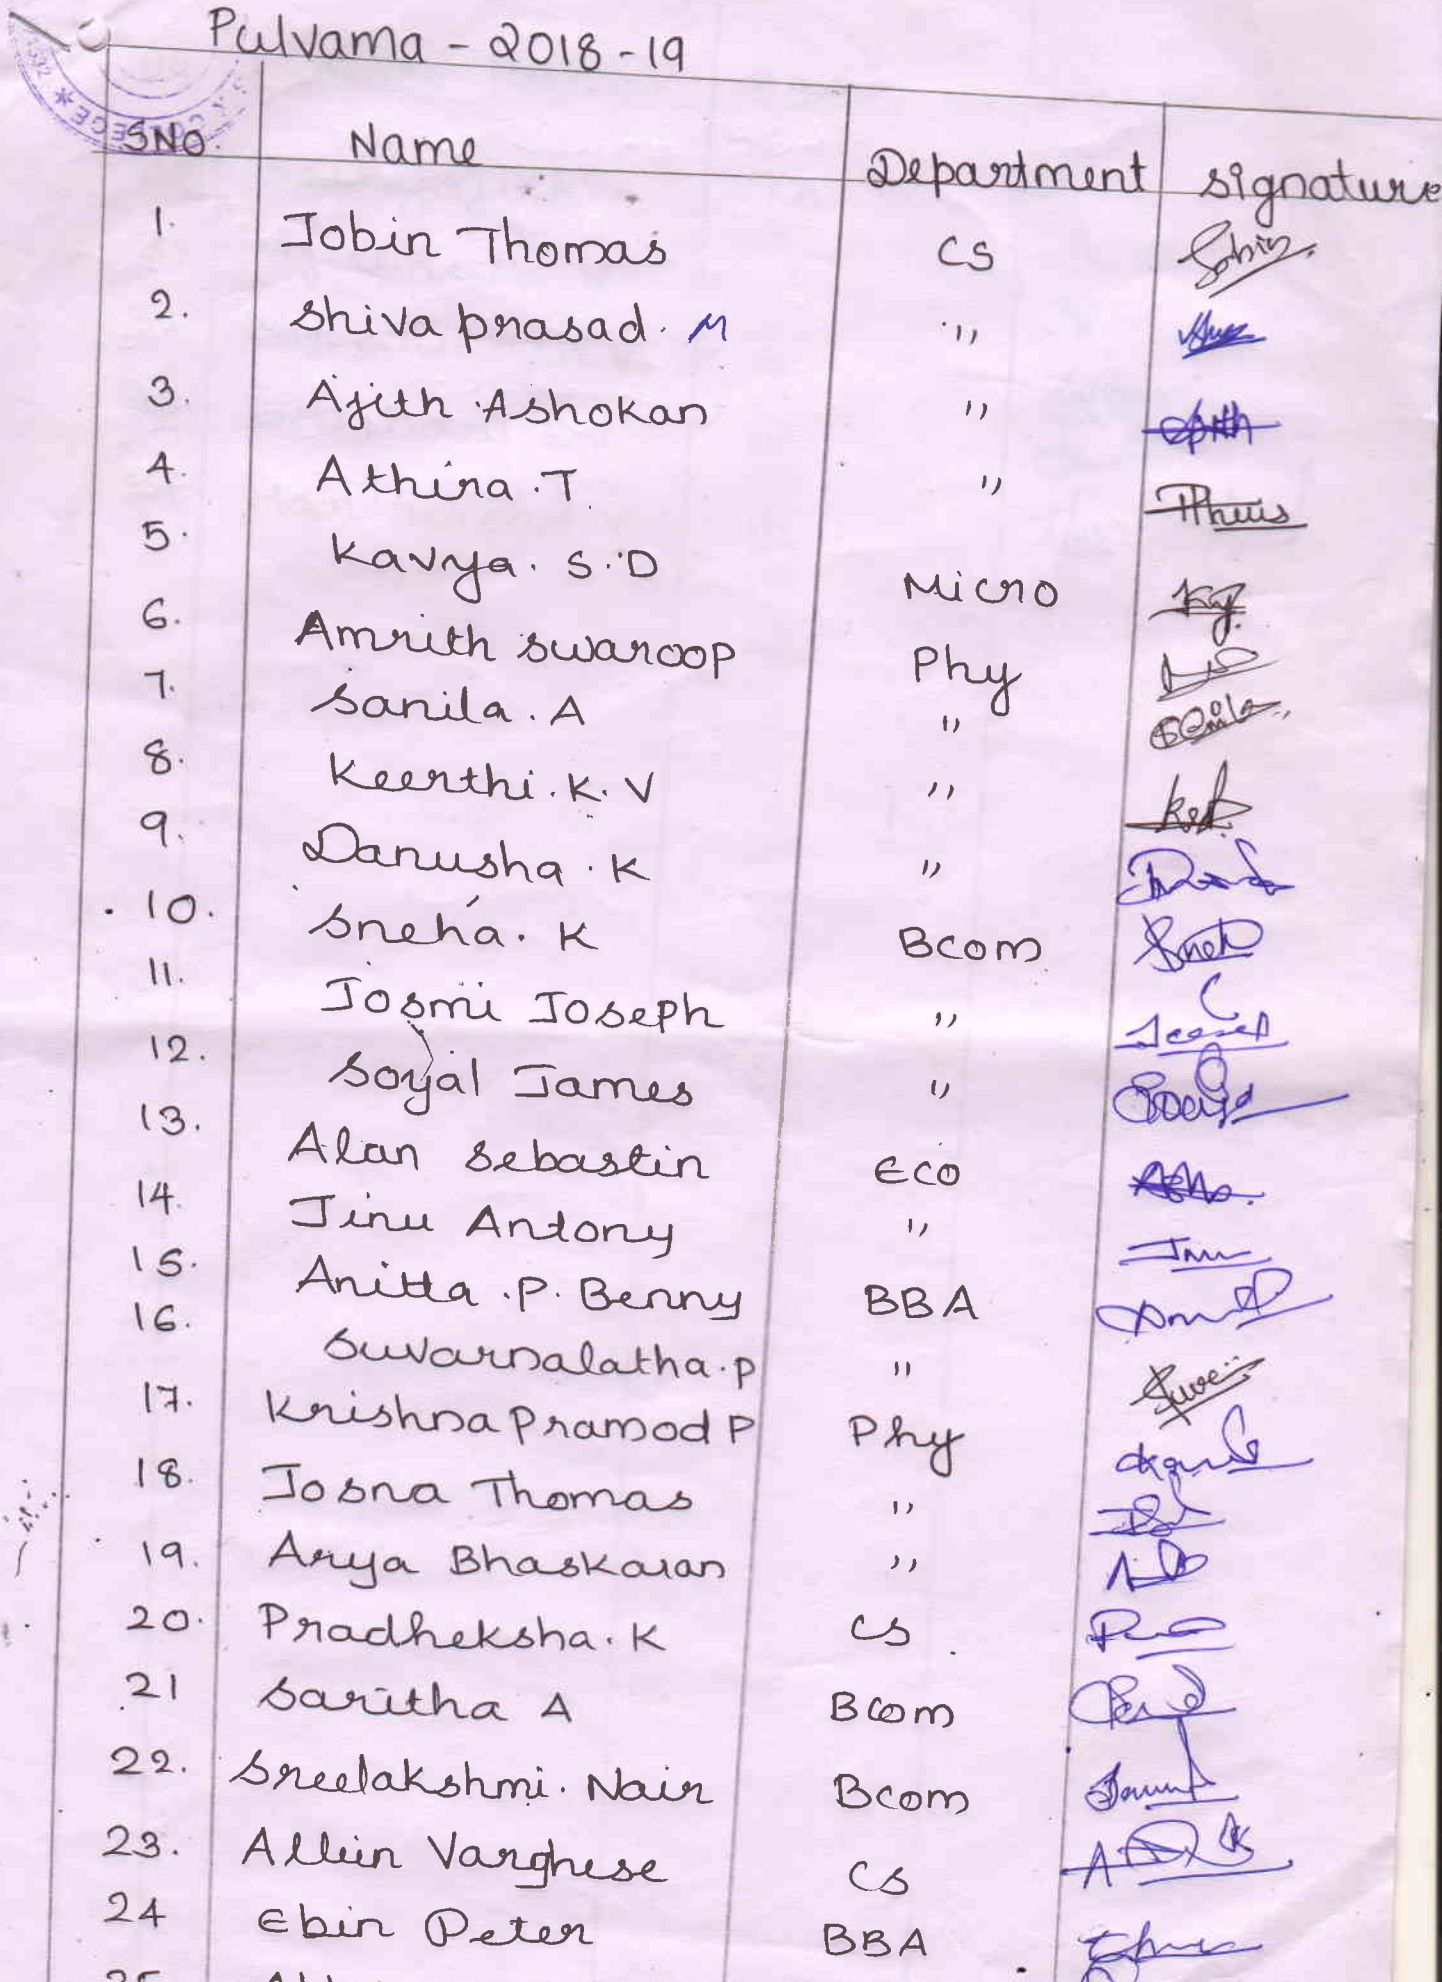 Pulvama - 2018-19
SNo. Name Department signature
1. Jobin Thomas CS Jobin
2. shiva prasad. M "
3. Ajith Ashokan " Ajith
4. Athira. T "
5. Kavya. S. D Micro
6. Amrith swaroop Phy
7. Sanila. A " Sanila
8. Keerthi. K. V "
9. Danusha. K "
10. Sneha. K Bcom Sneh
11. Josmi Joseph "
12. Soyal James "
13. Alan Sebastin ECO
14. Jinu Antony " Jinu
15. Anitta. P. Benny BBA
16. Suvarnalatha. P "
17. Krishna Pramod P Phy
18. Josna Thomas "
19. Arya Bhaskaran "
20. Pradheksha. K CS
21 Saritha A Bcom
22. Sreelakshmi. Nair Bcom
23. Allwin Varghese CS
24 Ebin Peter BBA
25.